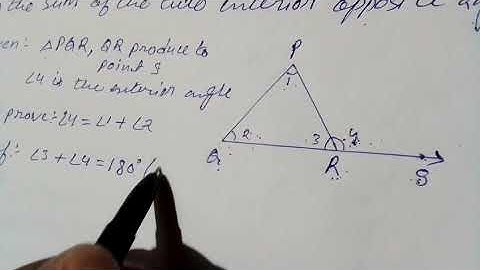 the sum of the two interior opposite
ΔPQR, QR produce to
point S
∠4 is the exterior angle
prove:- ∠4 = ∠1 + ∠2
∠3 + ∠4 = 180° (
P
1
Q
2
3
4
R
S